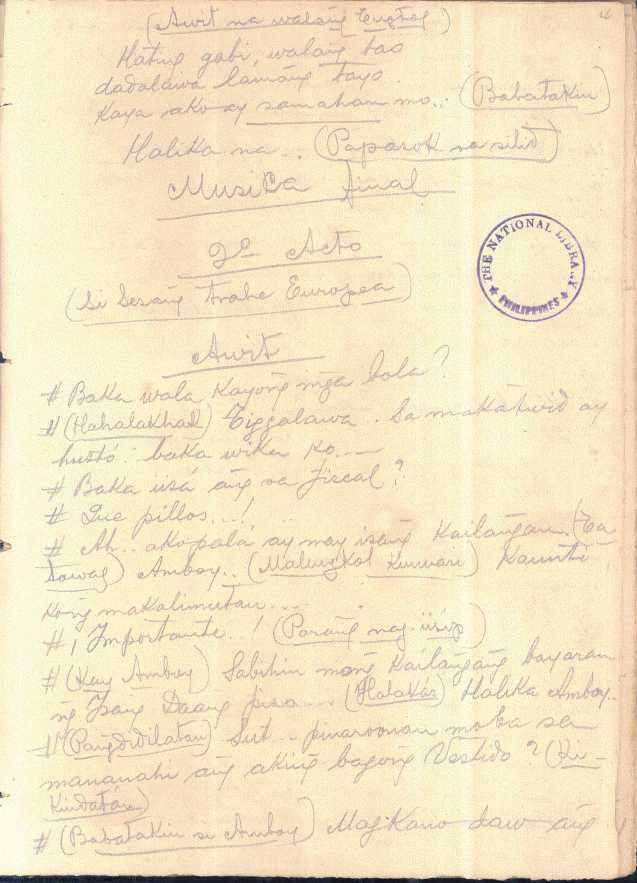 (Awit na walang Tugtog)
Hating gabi, walang tao
dadalawa lamang tayo.
Kaya ako ay samahan mo.. (Babatakin)
Halika na.. (Paparok na silid)
Musica final
2º Acto
(Si Sesang trahe Europea)
Awit
# Baka wala kayong mga bola?
# (Hahalakhak) Tiggalawa. Sa makatuwid ay
husto: baka wika ko.--
# Baka iisá ang sa fiscal?
# Que pillos...!
# Ah.. ako palá ay may isang kailangan. (Ta
tawag) Amboy.. (Malungkot kunwari) Kaunti
kong makalimutan....
# ¡Importante..! (Parang nag iisip)
# (Kay Amboy) Sabihin mong kailangang bayaran
ng Isang Daang piso... (Halakás) Halika Amboy..
# (Pangdidilatan) Sut.. pinaroonan moba sa
mananahi ang aking bagong Vestido? (Ki-
kindatán)
# (Babatakin si Amboy) Magkano daw ang
THE NATIONAL LIBRARY
PHILIPPINES